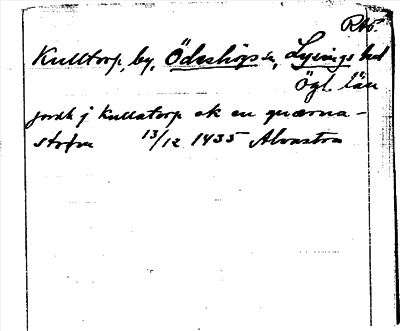 Rb6.
Kulltorp, by, Ödeshögs sn, Lysings hd
Ögl. län
jordh j Kullatorp ok en quærna-
strøm 13/12 1435 Alvastra